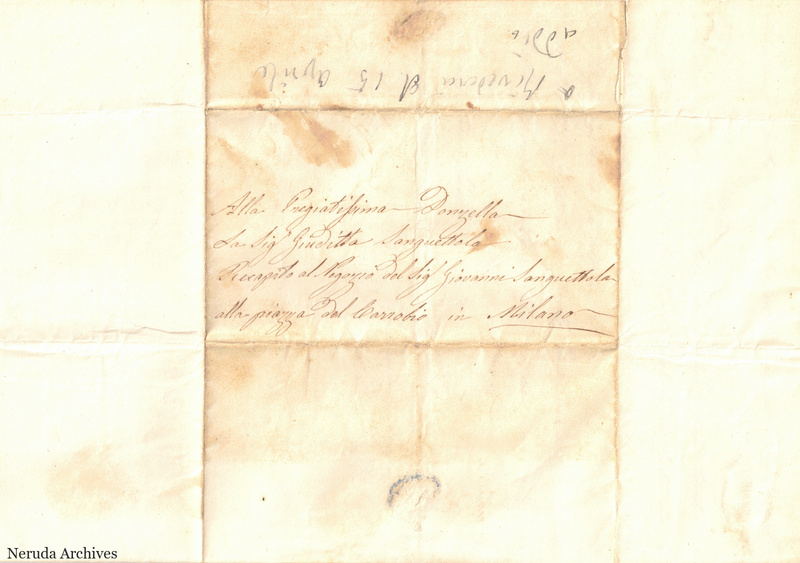 addio
a Rivederci il 15 aprile
Alla Pregiatissima Donzella
La Sigª Giuditta Sanquettola
Recapito al Negozio del Sigʳ Giovanni Sanquettola
alla piazza del Carrobio in Milano
Neruda Archives